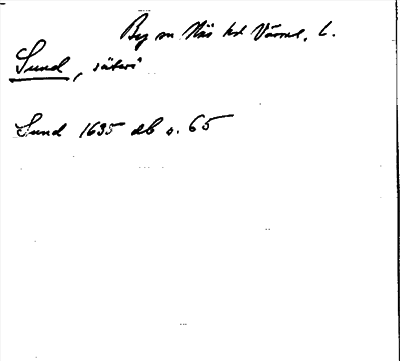 By sn Näs hd Värml. l.
Sund, säteri
Sund 1635 db s. 65